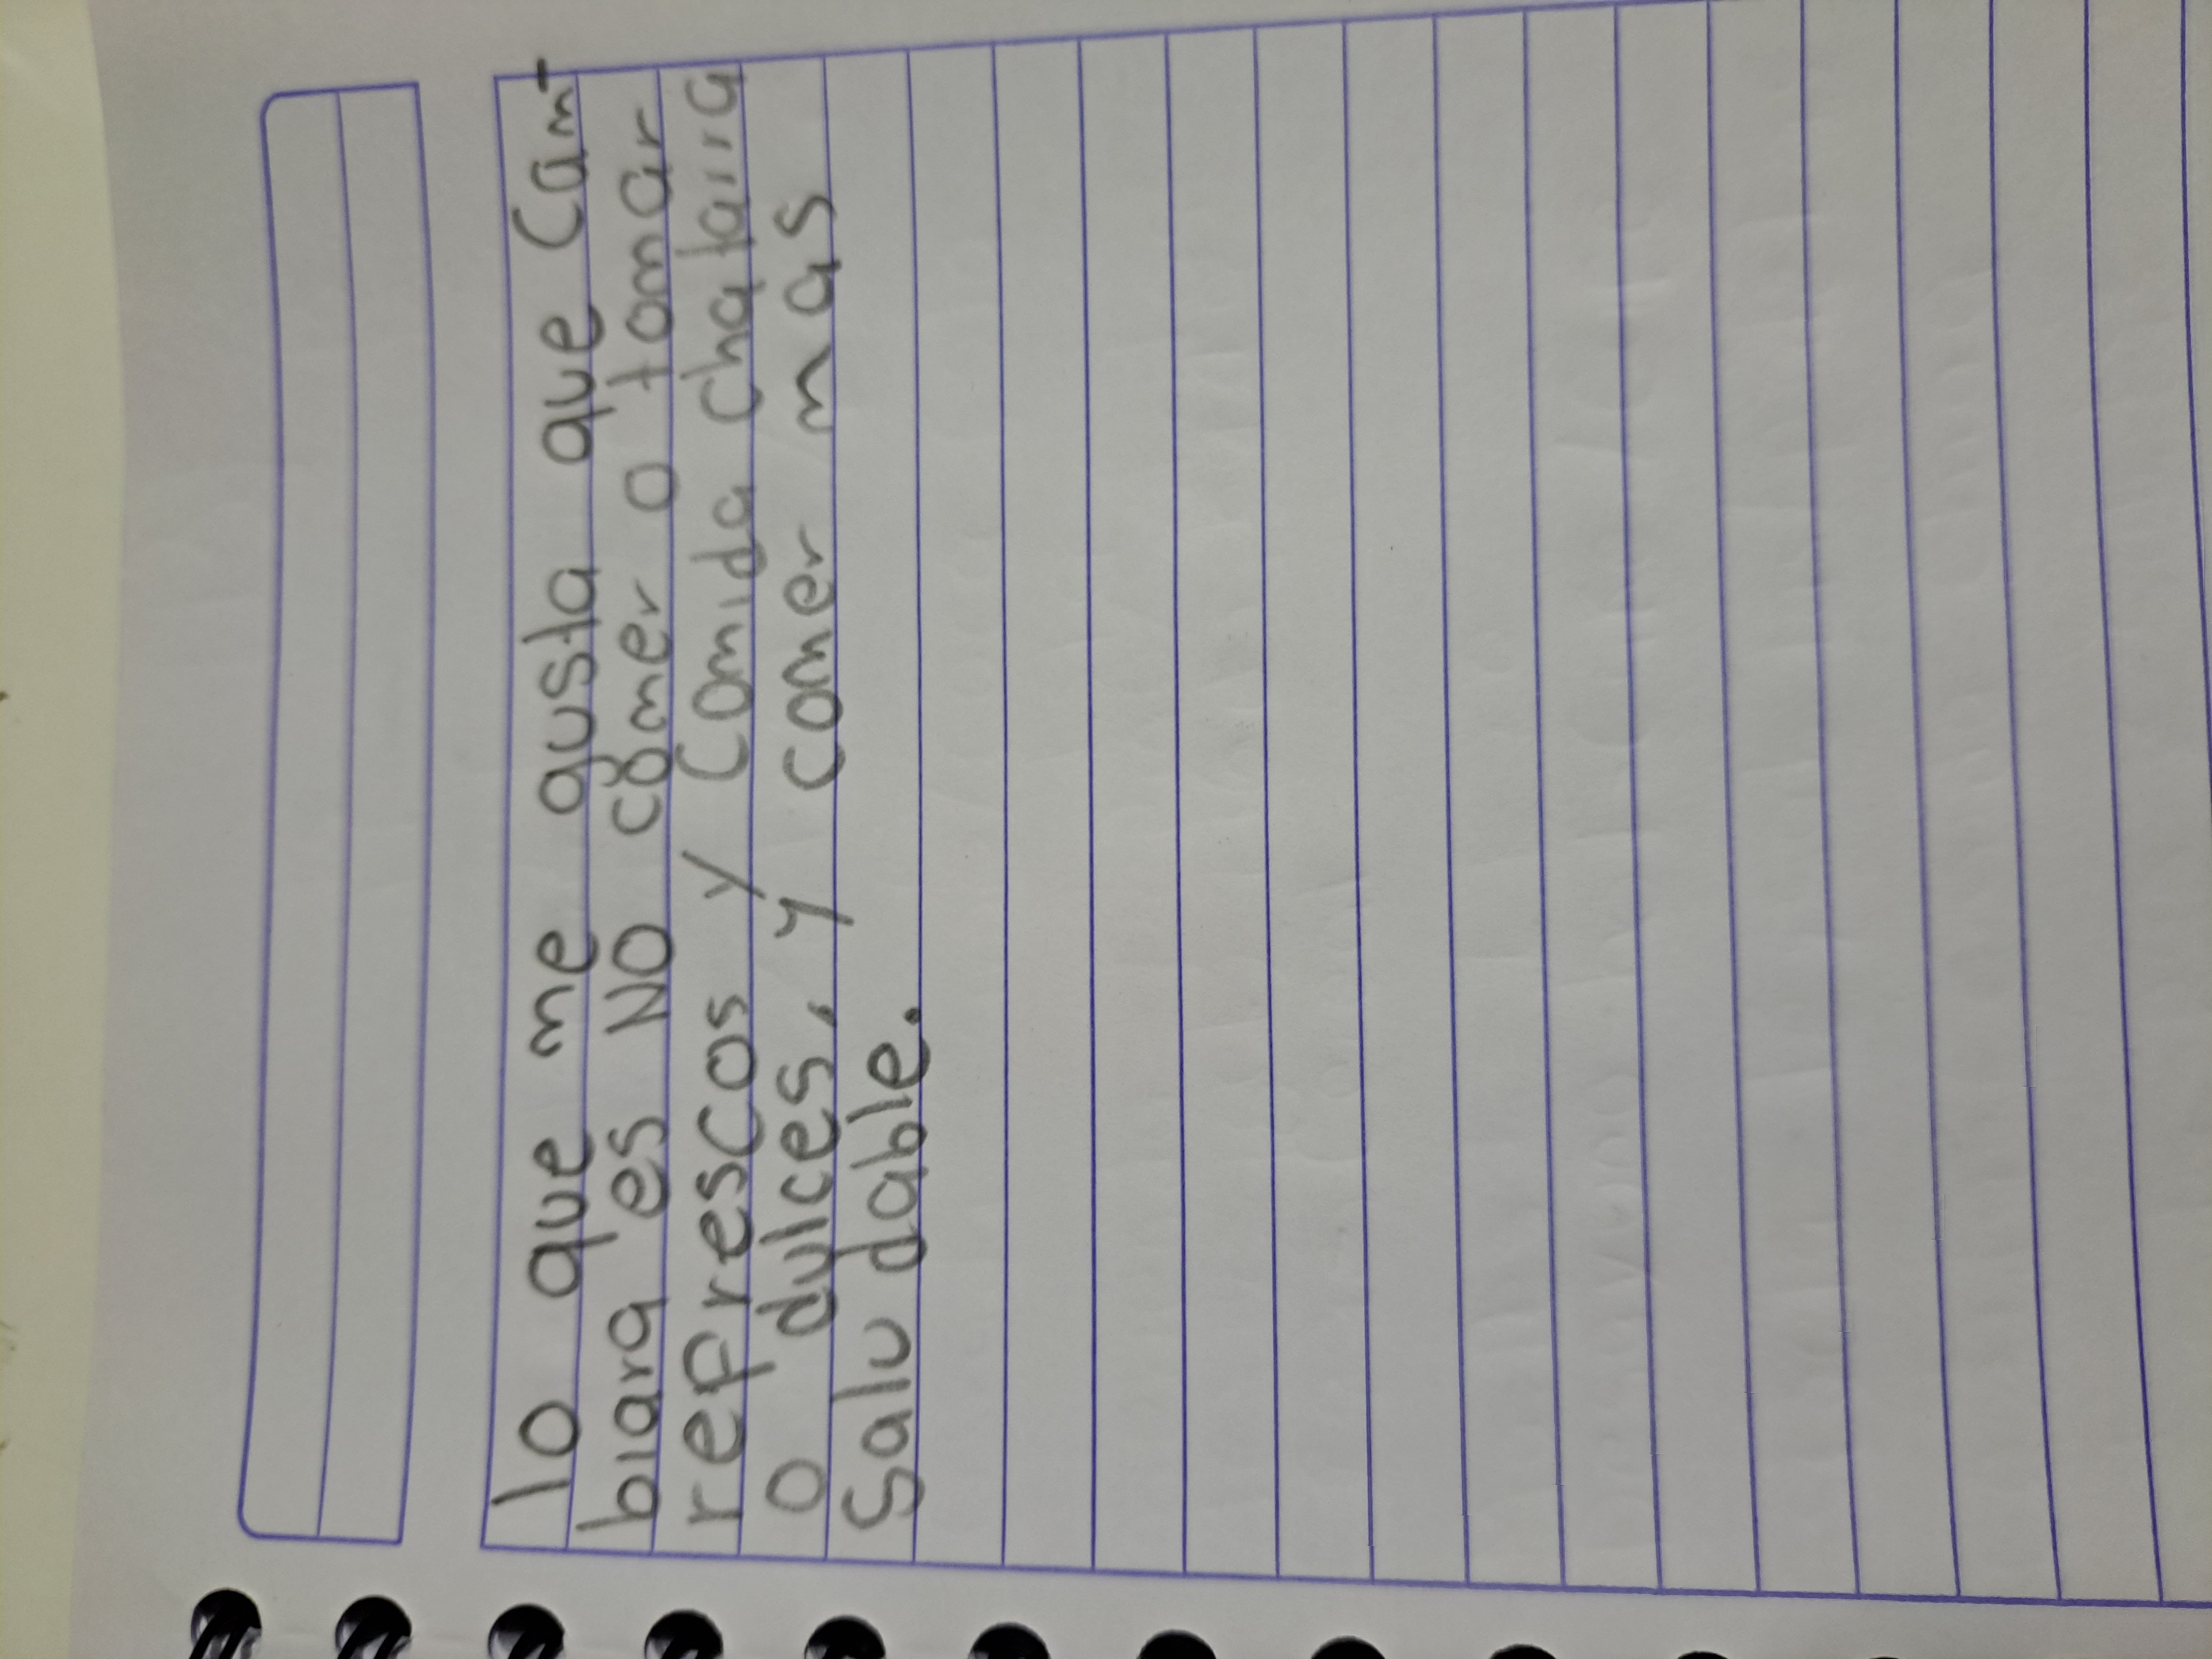 lo que me gusta que cam-
biara es NO comer o tomar
refrescos y comida chatarra
o dulces, y comer mas
Salu dable.